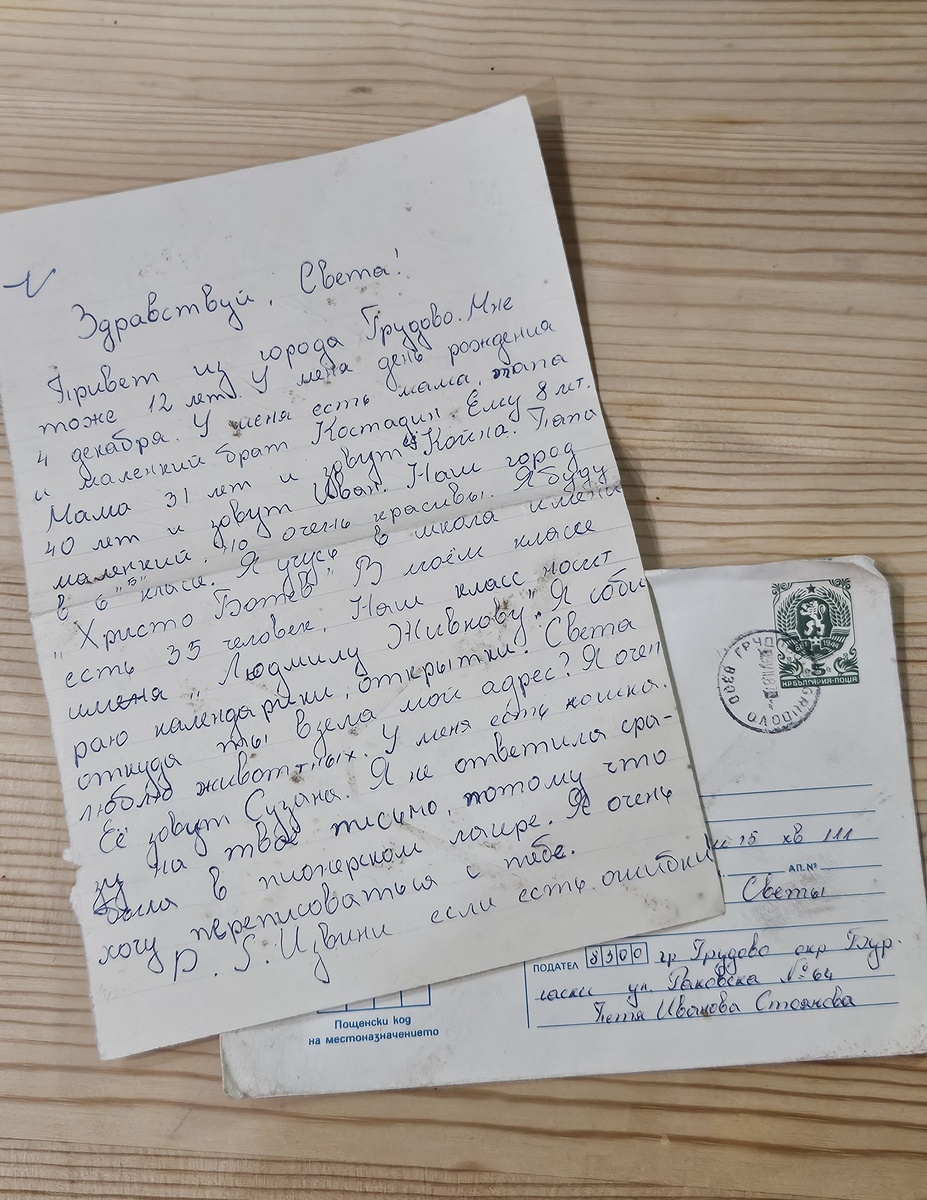 Здравствуй, Света!
Привет из города Грудово. Мне
тоже 12 лет. У мена день рождения
4 декабря. У меня есть мама, папа
и маленкий брат Костадин. Ему 8 лт.
Мама 31 лет и зовут Койна. Папа
40 лет и зовут Иван. Наш город
маленкий, но очень красивы. Я буду
в "6" класа. Я учусь в школа имени
"Христо Ботев" В моём классе
есть 33 человек. Наш класс носит
имена "Людмилу Живкову". Я соби
раю календарики, открытки. Света
откуда ты взела мой адрес? Я очен
люблю животных. У меня есть кошка.
Её зовут Сузана. Я не ответила сра-
зу на твае письмо, потому что
была в пионерском лагире. Я очень
хочу переписоваться с тебе.
P.S. Извини если есть ошибки
НР БЪЛГАРИЯ·ПОЩА
5
GRUDOVO
15 кв 111
АП.№
Светы
ПОДАТЕЛ 8300 гр Грудово окр Бур.
гаски ул. Раковска № 64
Петя Иванова Стоянова
Пощенски код
на местоназначението